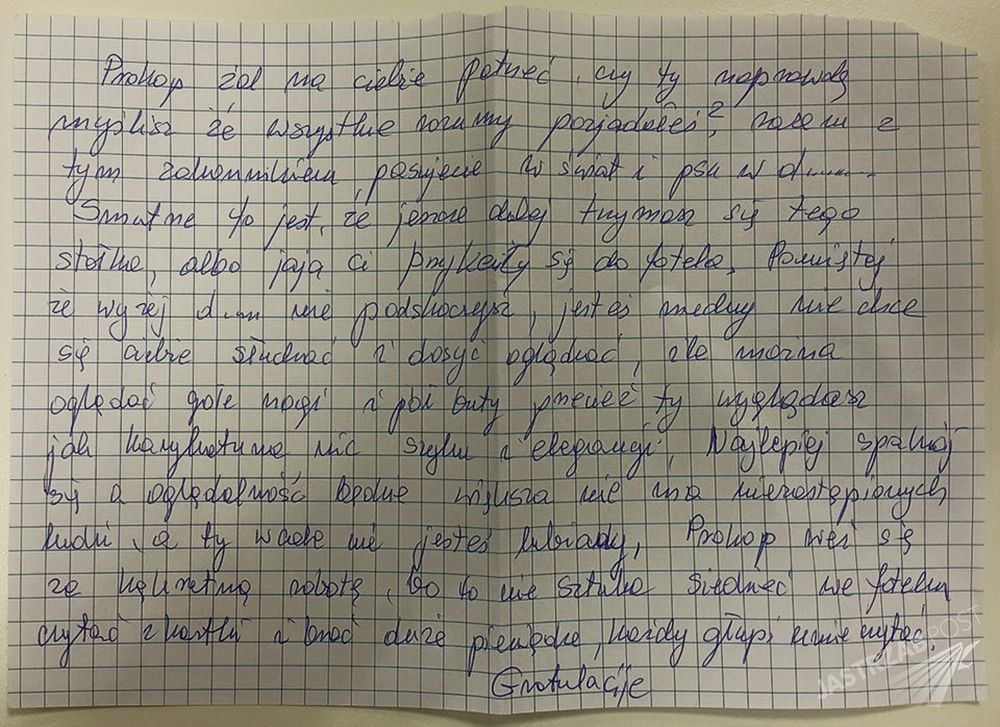 Prokop żal na ciebie patrzeć, czy ty naprawdę
myślisz że wszystkie rozumy pozjadałeś?, razem z
tym zakonnikiem, pasujecie w świat i psu w d.......
Smutne to jest, że jeszcze dalej trzymasz się tego
stołka, albo jaja ci przykleiły się do fotela, Pamiętej
że wyżej d... nie podskoczysz, jesteś nudny nie chce
się ciebie słuchać i dosyć oglądać, ile można
oglądać gołe nogi i pół buty przecież ty wyglądasz
jak karykatura nic szyku i elegancji, Najlepiej spakuj
się a oglądalność będzie większa nie ma niezastąpionych
ludzi, a ty wcale nie jesteś lubiany, Prokop weś się
za kąkretną robotę, bo to nie sztuka siedzieć we fotelu
czytać z kartki i brać duże pieniądze, każdy głupi umie czytać.
Gratulacije
JASTRZĄBPOST